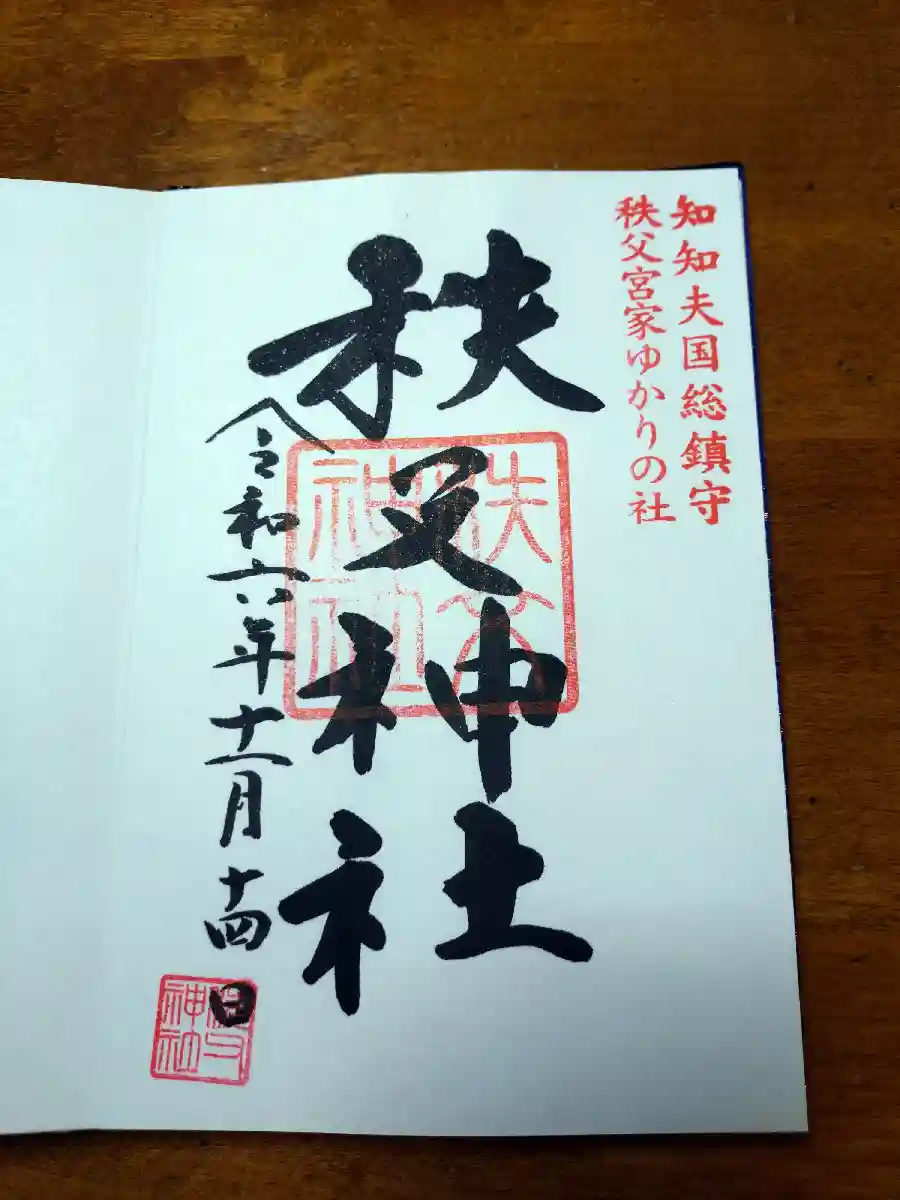 知知夫国総鎮守
秩父宮家ゆかりの社
秩父神社
秩父神社
令和六年十一月十四日
秩父神社